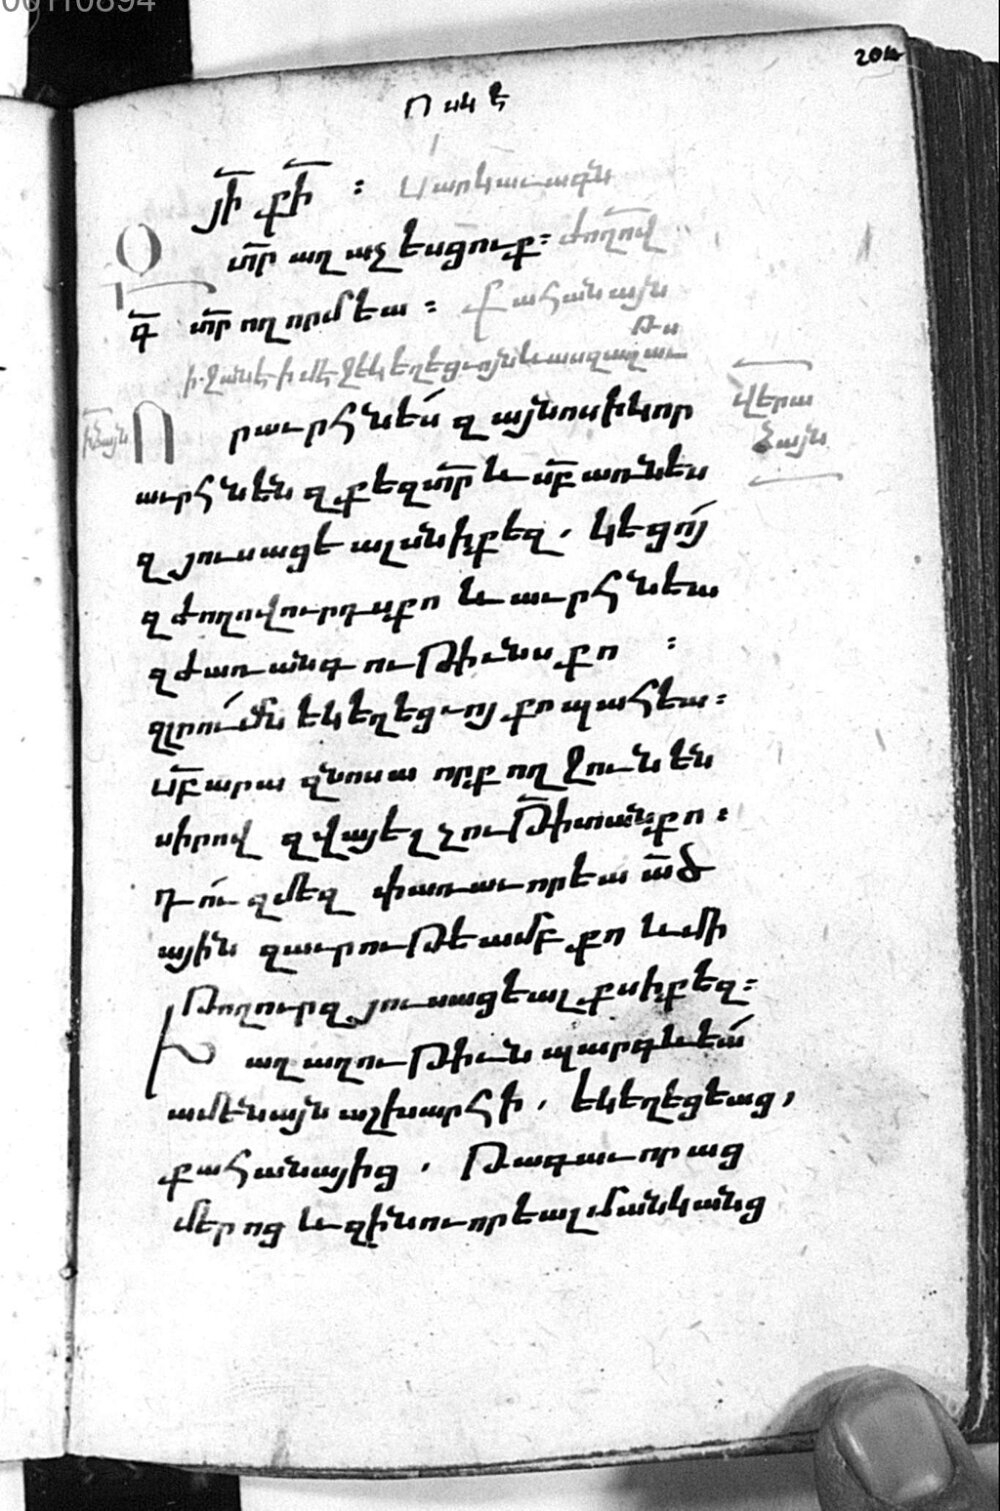 00110894
204
Ո սկ է
յի քի : Սարկաւագն
տր աղաչեսցուք։ ժողով
գ տր ողորմեա : քահանայն
ի ջանէ ի մէջ եկեղեցւոյն և ասզաղաւ
Թս
Որաւրհնես զայնոսիկ որ
վերա
ձայն
աւրհնեն զքեզ տր և սբ առնես
զյուսացեալսն ի քեզ, կեցոյ
զժողովուրդս քո և աւրհնեա
զժառանգութիւնս քո :
զլրումն եկեղեցւոյ քո պահեա։
սբ արա զնոսա որք ողջունեն
սիրով զվայելչութի տանքո։
դու զմեզ փառաւորեա ած
ային զաւրութեամբ քո և մի
թողուր զյուսացեալքս ի քեզ։
Խաղաղութիւն պարգևեա
ամենայն աշխարհի, եկեղեցեաց,
քահանայից, թագաւորաց
մերոց և զինուորեալ մանկանց